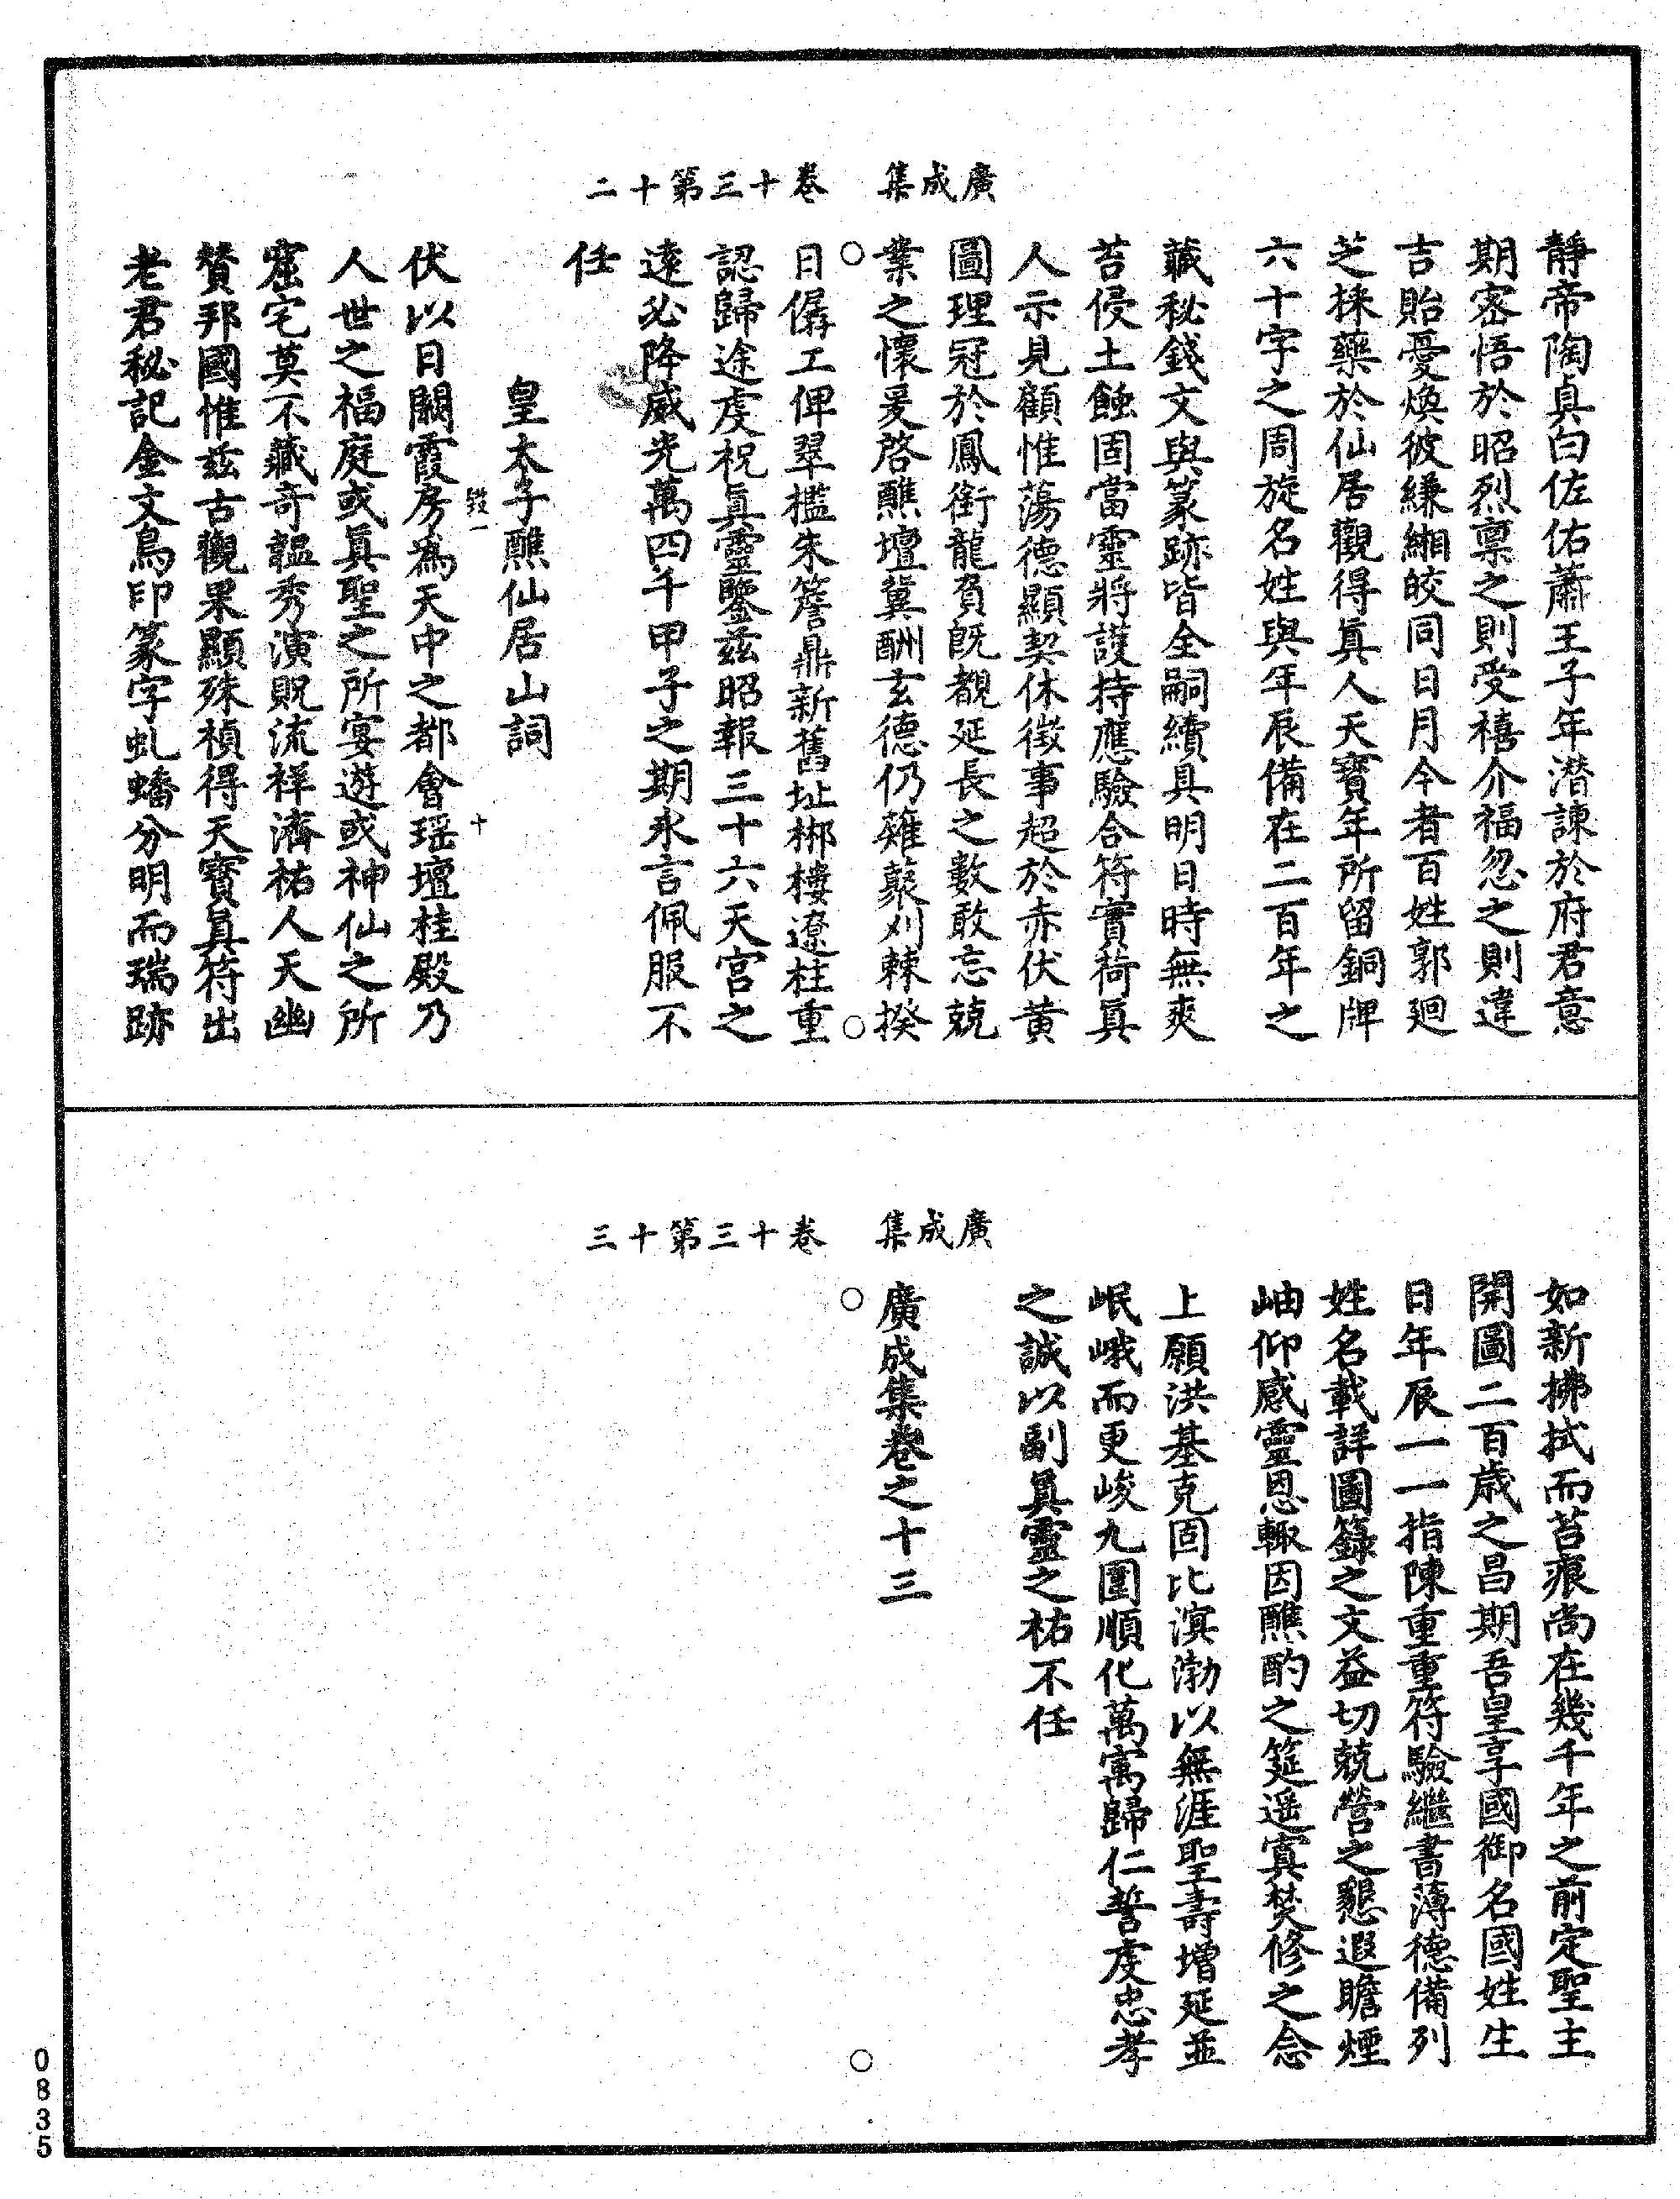 廣成集　卷十三第十二
靜帝陶真白佐佑蕭王子年潛諫於府君意
期密悟於昭烈禀之則受禧介福忽之則違
吉貽憂煥彼縑緗皎同日月今者百姓郭廻
芝採藥於仙居觀得眞人天寶年所留銅牌
六十字之周旋名姓與年辰備在二百年之
藏秘錢文與篆跡皆全嗣續具明日時無爽
苔侵土蝕固當靈將護持應驗合符實荷眞
人示見顧惟蕩德顯契休徵事超於赤伏黃
圖理冠於鳳銜龍負旣覩延長之數敢忘兢
業之懷爰啓醮壇冀酬玄德仍薙藂刈棘揆
日僝工俾翠檻朱簷鼎新舊址梆樓遼柱重
認歸途虔祝眞靈鑒兹昭報三十六天宮之
遠必降威光萬四千甲子之期永言佩服不
任
皇太子醮仙居山詞
毀一　十
伏以日闕霞房為天中之都會瑶壇桂殿乃
人世之福庭或眞聖之所宴遊或神仙之所
窟宅莫不藏奇韞秀演貺流祥濟祐人天幽
贊邦國惟兹古觀果顯殊楨得天寶眞符出
老君秘記金文鳥印篆字虬蟠分明而瑞跡
廣成集　卷十三第十三
如新拂拭而苔痕尚在幾千年之前定聖主
開圖二百歲之昌期吾皇享國御名國姓生
日年辰一一指陳重重符驗繼書薄德備列
姓名載詳圖籙之文益切兢營之懇遐瞻煙
岫仰感靈恩輙因醮酌之筵遥寘焚修之念
上願洪基克固比溟渤以無涯聖壽增延並
岷峨而更峻九圍順化萬㝢歸仁誓虔忠孝
之誠以副眞靈之祐不任
廣成集卷之十三
0835